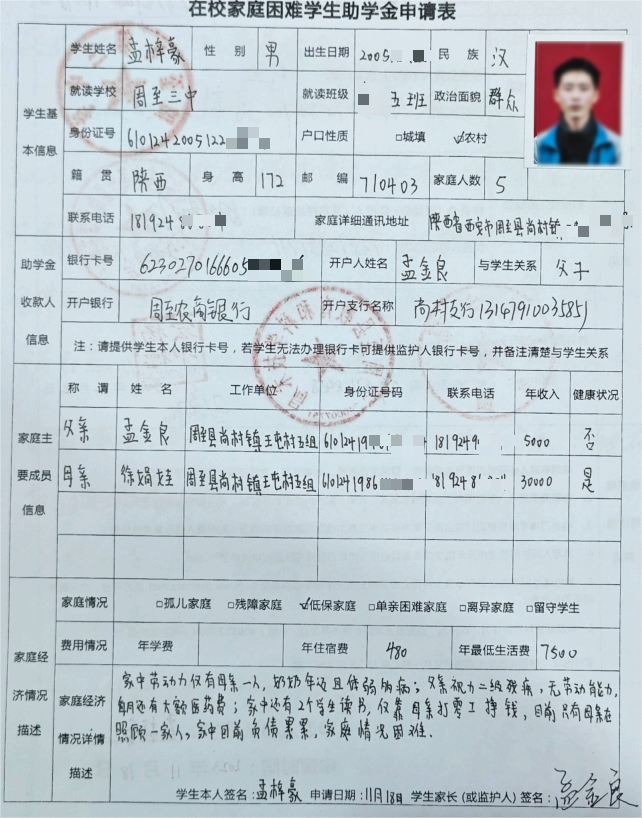 在校家庭困难学生助学金申请表
学生基本信息
学生姓名 孟梓豪 性别 男 出生日期 2005 民族 汉
就读学校 周至三中 就读班级 五班 政治面貌 群众
身份证号 6101242005122 户口性质 □城镇 ☑农村
籍贯 陕西 身高 172 邮编 710403 家庭人数 5
联系电话 181924 家庭详细通讯地址 陕西省西安市周至县尚村镇
助学金收款人信息
银行卡号 6230270166605 开户人姓名 孟金良 与学生关系 父子
开户银行 周至农商银行 开户支行名称 尚村支行 1314791003585
注：请提供学生本人银行卡号，若学生无法办理银行卡可提供监护人银行卡号，并备注清楚与学生关系
家庭主要成员信息
称谓 姓名 工作单位 身份证号码 联系电话 年收入 健康状况
父亲 孟金良 周至县尚村镇王屯村五组 61012419 181924 5000 否
母亲 徐娟娃 周至县尚村镇王屯村五组 610124198 181924 30000 是
家庭经济情况描述
家庭情况 □孤儿家庭 □残障家庭 ☑低保家庭 □单亲困难家庭 □离异家庭 □留守学生
费用情况 年学费 年住宿费 480 年最低生活费 7500
家庭经济情况详情描述
家中劳动力仅有母亲一人，奶奶年迈且体弱多病；父亲视力二级残疾，无劳动能力，
每月还有大额医药费；家中还有2个学生读书，仅靠母亲打零工挣钱，目前只有母亲在
照顾一家人，家中目前负债累累，家庭情况困难．
学生本人签名：孟梓豪 申请日期：11月18日 学生家长（或监护人）签名：孟金良